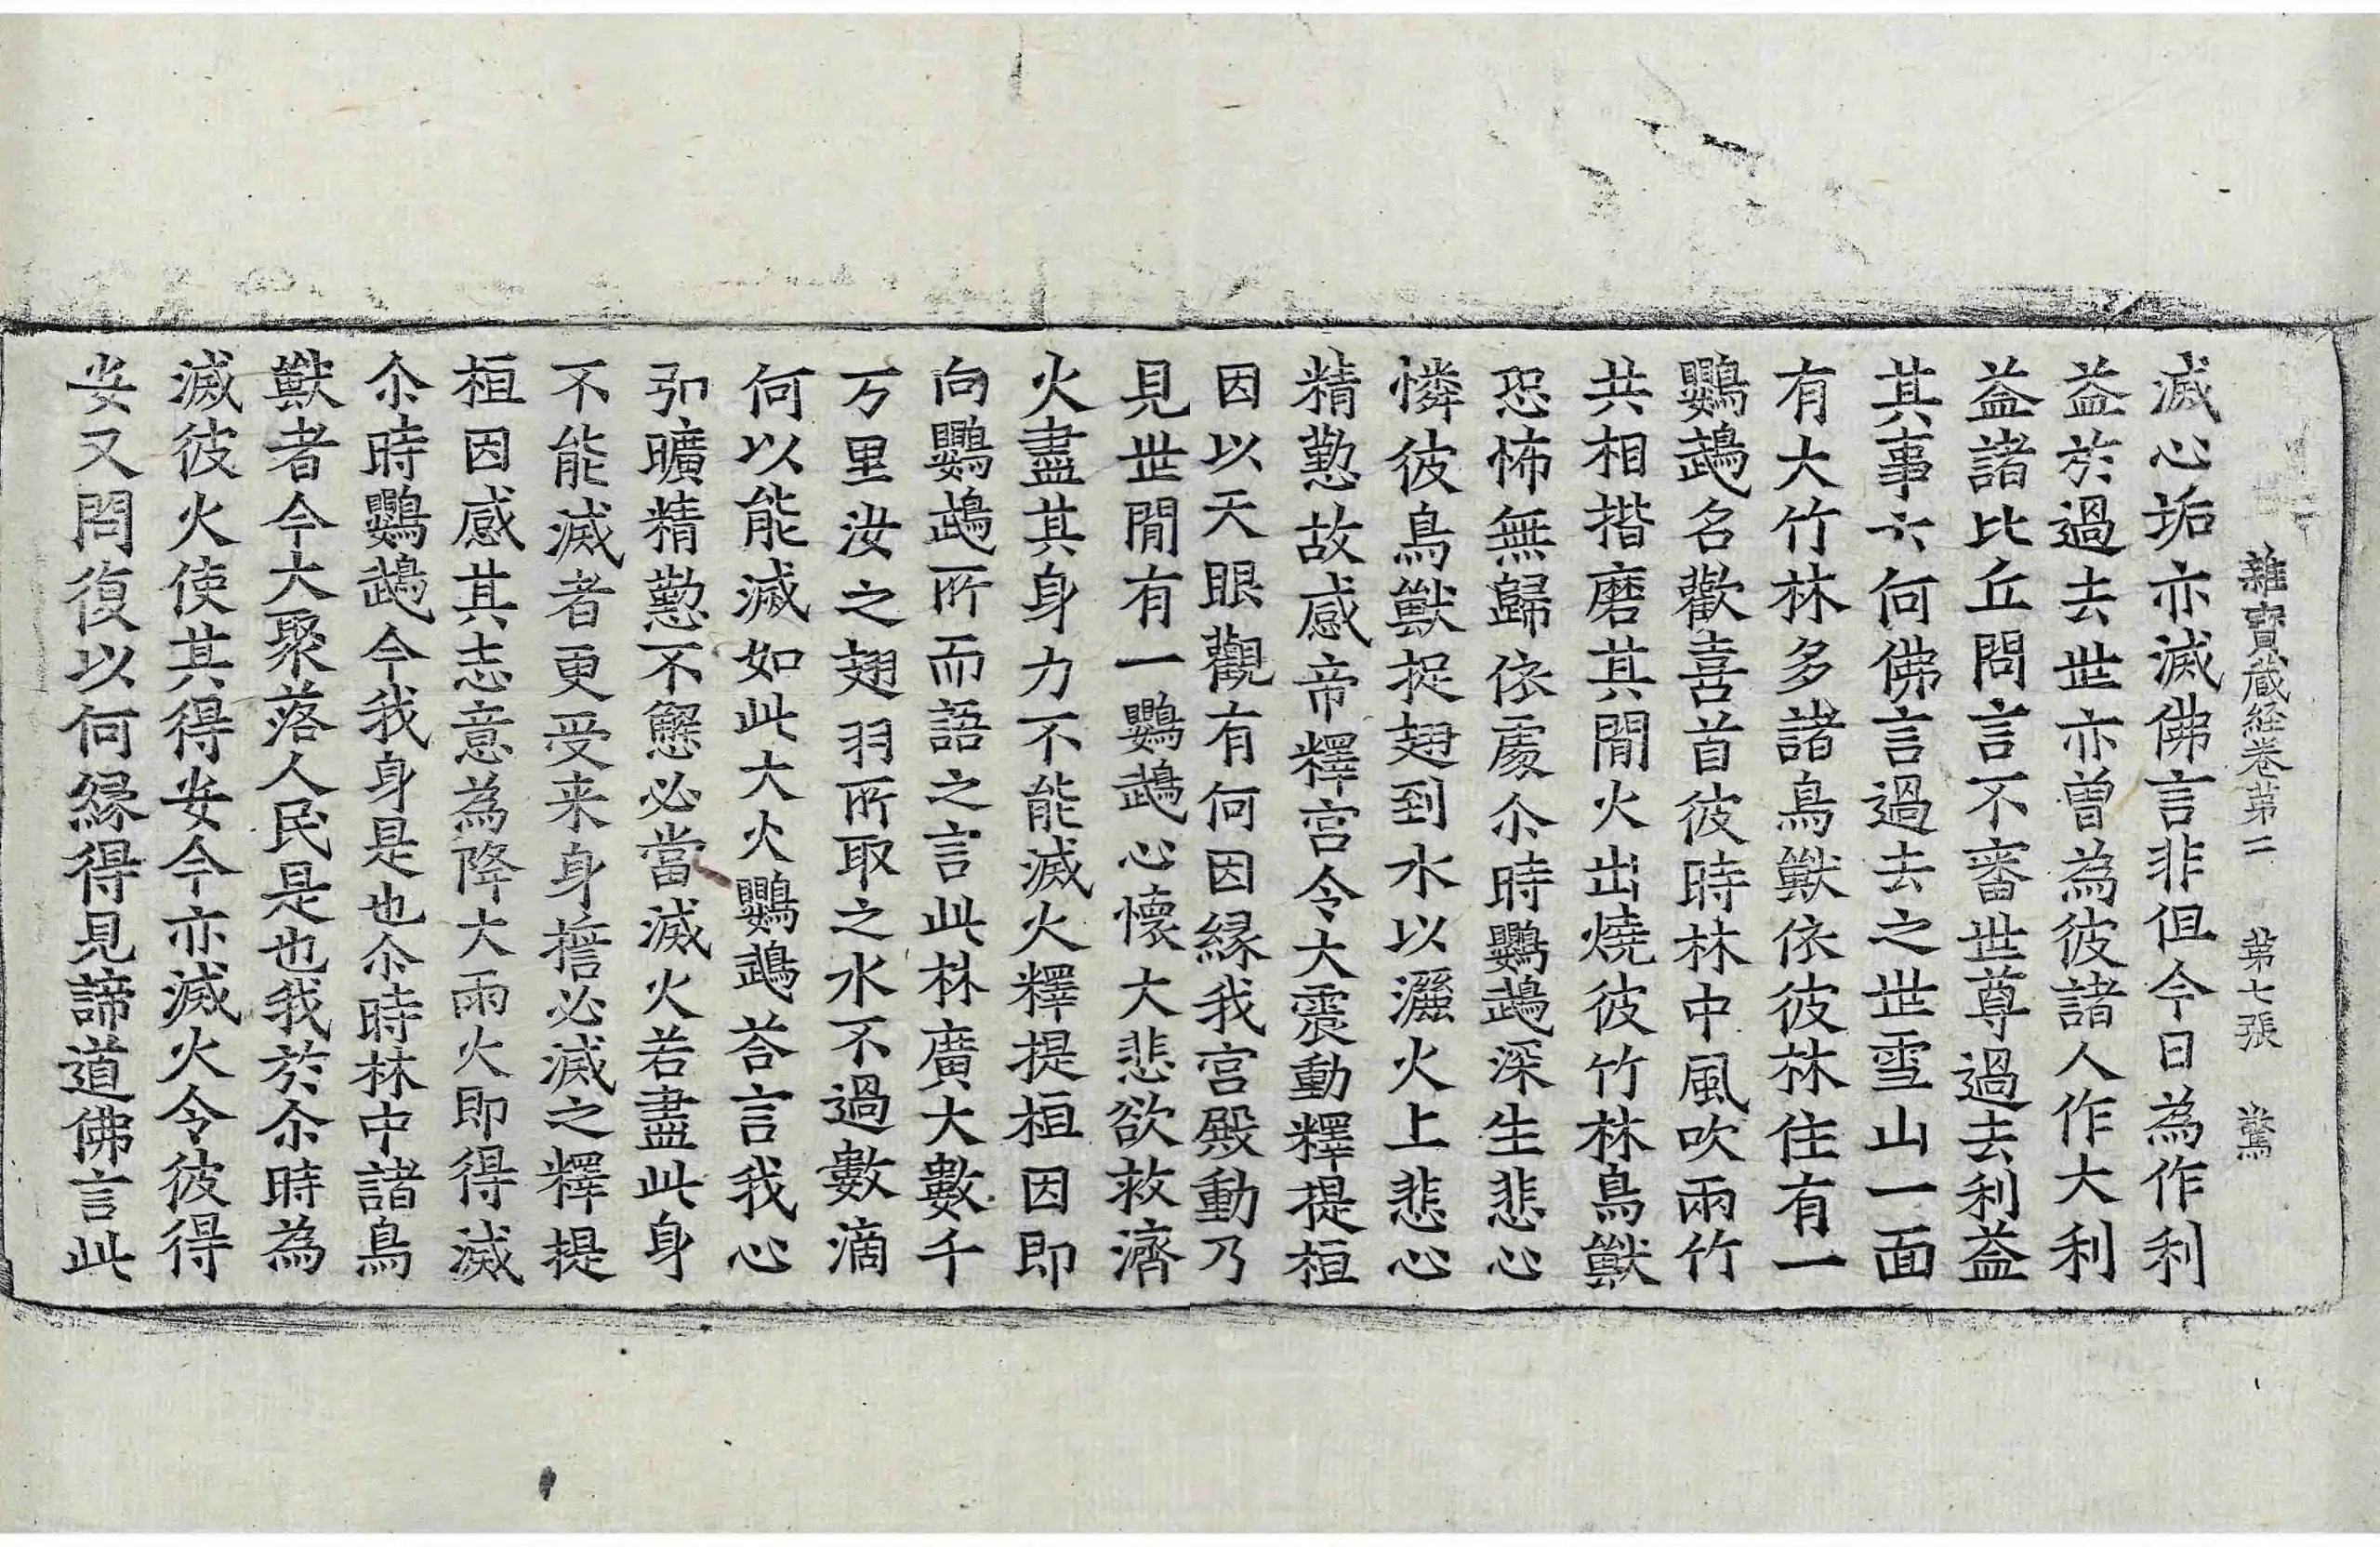 雜寶蔵経卷苐二　苐七張　驚
滅心垢亦滅佛言非但今日為作利
益於過去世亦曾為彼諸人作大利
益諸比丘問言不審世尊過去利益
其事云何佛言過去之世雪山一面
有大竹林多諸鳥獸依彼林住有一
鸚鵡名歡喜首彼時林中風吹兩竹
共相揩磨其閒火出燒彼竹林鳥獸
恐怖無歸依處尒時鸚鵡深生悲心
憐彼鳥獸捉翅到水以灑火上悲心
精懃故感帝釋宮令大震動釋提桓
因以天眼觀有何因緣我宮殿動乃
見世閒有一鸚鵡心懷大悲欲救濟
火盡其身力不能滅火釋提桓因即
向鸚鵡所而語之言此林廣大數千
万里汝之翅羽所取之水不過數滴
何以能滅如此大火鸚鵡荅言我心
弘曠精懃不懈必當滅火若盡此身
不能滅者更受来身誓必滅之釋提
桓因感其志意為降大雨火即得滅
尒時鸚鵡今我身是也尒時林中諸鳥
獸者今大聚落人民是也我於尒時為
滅彼火使其得安今亦滅火令彼得
安又問復以何緣得見諦道佛言此